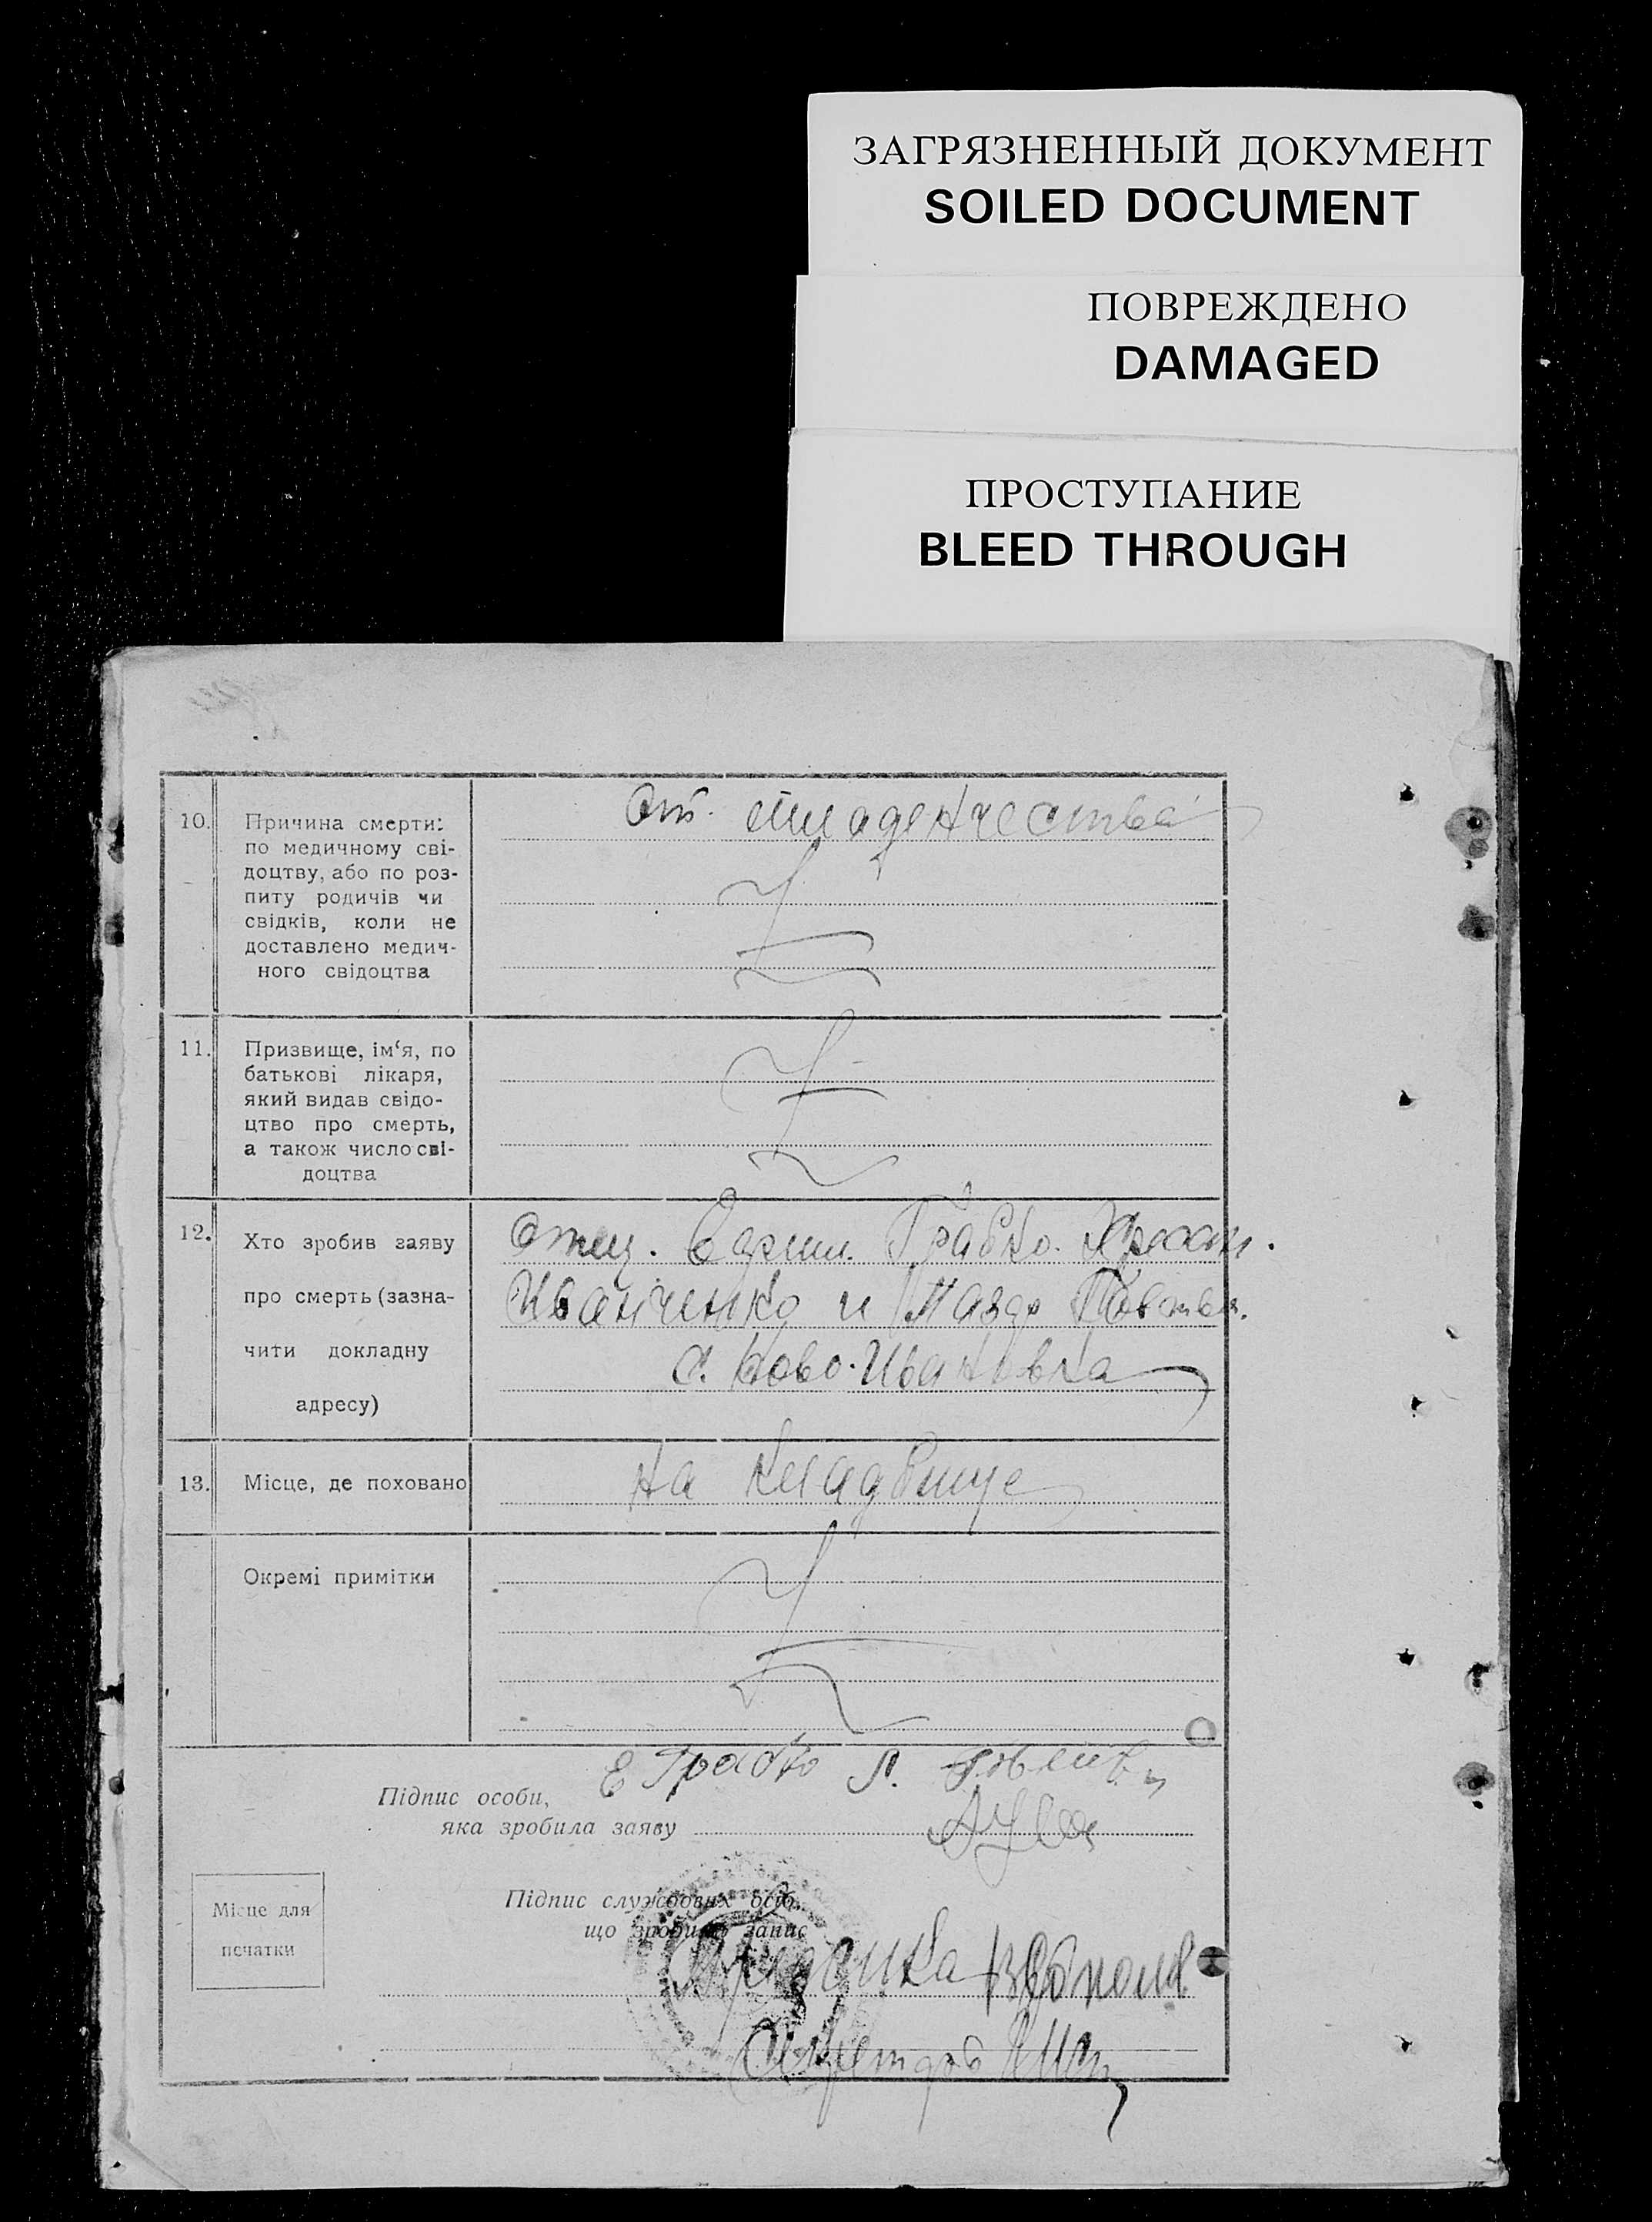 ЗАГРЯЗНЕННЫЙ ДОКУМЕНТ
SOILED DOCUMENT
ПОВРЕЖДЕНО
DAMAGED
ПРОСТУПАНИЕ
BLEED THROUGH
10. Причина смерти:
по медичному сві-
доцтву, або по роз-
питу родичів чи
свідків, коли не
доставлено медич-
ного свідоцтва
От младенчества
11. Призвище, ім‘я, по
батькові лікаря,
який видав свідо-
цтво про смерть,
а також число сві-
доцтва
12. Хто зробив заяву
про смерть (зазна-
чити докладну
адресу)
Отец. Грабко.
Иванченко и
с. Ново-Ивановка
13. Місце, де поховано
на кладвище
Окремі примітки
Е Грабко
Підпис особи,
яка зробила заяву
Місце для
печатки
Підпис службових осіб,
що зробили запис